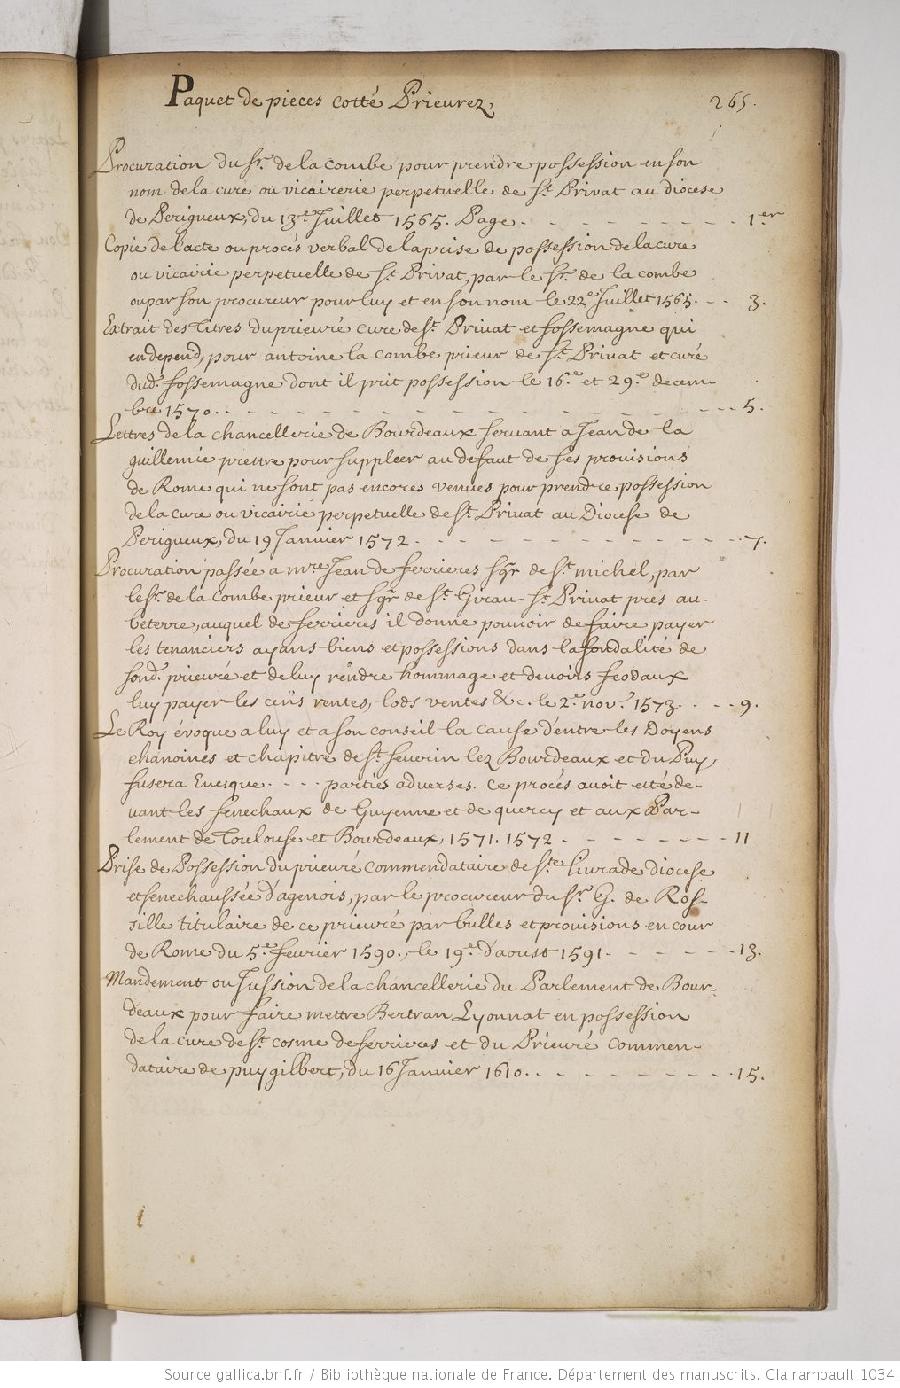 Paquet de pieces cotté Prieurez,
265.
Procuration du Sr. de la combe pour prendre possession en son
nom de la cure ou vicairerie perpetuelle de St. Privat au diocese
de Perigueux, du 13e. Juillet 1565. Page. 1er
Copie de l'acte ou procés verbal de la prise de possession de la cure
ou vicairie perpetuelle de St. Privat, par le Sr. de la combe
ou par son procureur pour luy et en son nom le 22e. Juillet 1565. 3.
Extrait des titres du prieuré cure de St. Privat et fossemagne qui
en depend, pour antoine la combe prieur de St. Privat et curé
dud. fossemagne dont il prit possession le 16.e et 29.e decem-
bre 1570. 5.
Lettres de la chancellerie de Bourdeaux servant a Jean de la
guillemie prettre pour suppleer au defaut de ses provisions
de Rome qui ne sont pas encores venues pour prendre possession
de la cure ou vicairie perpetuelle de St. Privat au Diocese de
Perigueux, du 19 Janvier 1572. 7.
Procuration passée a mre Jean de ferrieres sgr de St. michel, par
le Sr. de la Combe prieur et sgr de St. Girau - St. Privat prés au-
beterre, auquel de ferrieres il donne pouvoir de faire payer
les tenanciers ayans biens et possessions dans la fondalité de
sond. prieuré et de luy rendre hommage et devoirs feodaux
luy payer les cens rentes, lods ventes &c. le 2.e nov.e 1573. 9.
Le Roy évoque a luy et a son conseil la cause d'entre les Doyens
chanoines et chapitre de St. Severin lez Bourdeaux et du Puy,
fusera Eveique.... parties adverses. Ce procés avoit esté de-
vant les senechaux de Guyenne et de quercy et aux Par-
lement de Toulouse et Bourdeaux, 1571. 1572. 11
Prise de Possession du prieuré Commendataire de Ste. Livrade diocese
et senechaussée d'agenois, par le procureur du Sr. G. de Ros-
sille titulaire de ce prieuré par bulles et provisions en cour
de Rome du 5.e fevrier 1590., le 19.e d'aoust 1591. 13.
Mandement ou Jussion de la chancellerie du Parlement de Bour-
deaux pour faire mettre Bertran Lyonnat en possession
de la cure de St. cosme de ferrieres et du Prieuré Commen-
dataire de puygilbert, du 16 Janvier 1610. 15.
Source gallica.bnf.fr / Bibliothèque nationale de France. Département des manuscrits. Clairambault 1034